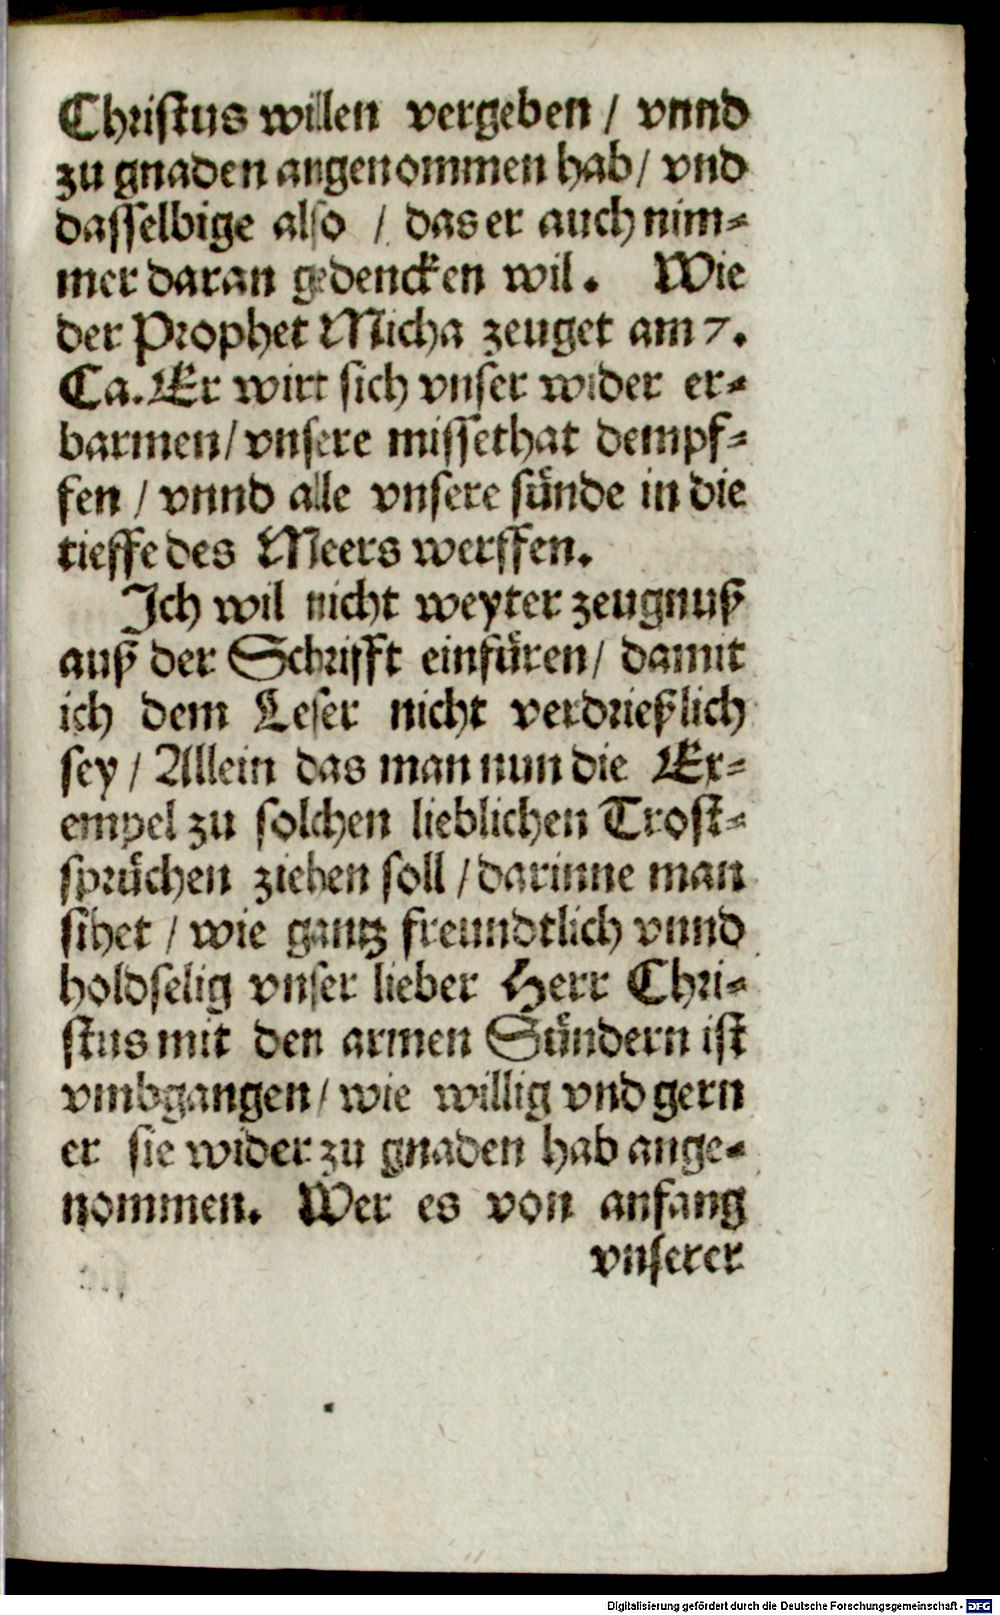 Christus willen vergeben / vnnd
zu gnaden angenommen hab / vnd
dasselbige also / das er auch nim-
mer daran gedencken wil. Wie
der Prophet Micha zeuget am 7.
Ca. Er wirt sich vnser wider er-
barmen / vnsere missethat dempf-
fen / vnnd alle vnsere sünde in die
tieffe des Meers werffen.
Ich wil nicht weyter zeugnuß
auß der Schrifft einfüren / damit
ich dem Leser nicht verdrießlich
sey / Allein das man nun die Ex-
empel zu solchen lieblichen Trost-
sprüchen ziehen soll / darinne man
sihet / wie gantz freundtlich vnnd
holdselig vnser lieber Herr Chri-
stus mit den armen Sündern ist
vmbgangen / wie willig vnd gern
er sie wider zu gnaden hab ange-
nommen. Wer es von anfang
vnserer
Digitalisierung gefördert durch die Deutsche Forschungsgemeinschaft - DFG